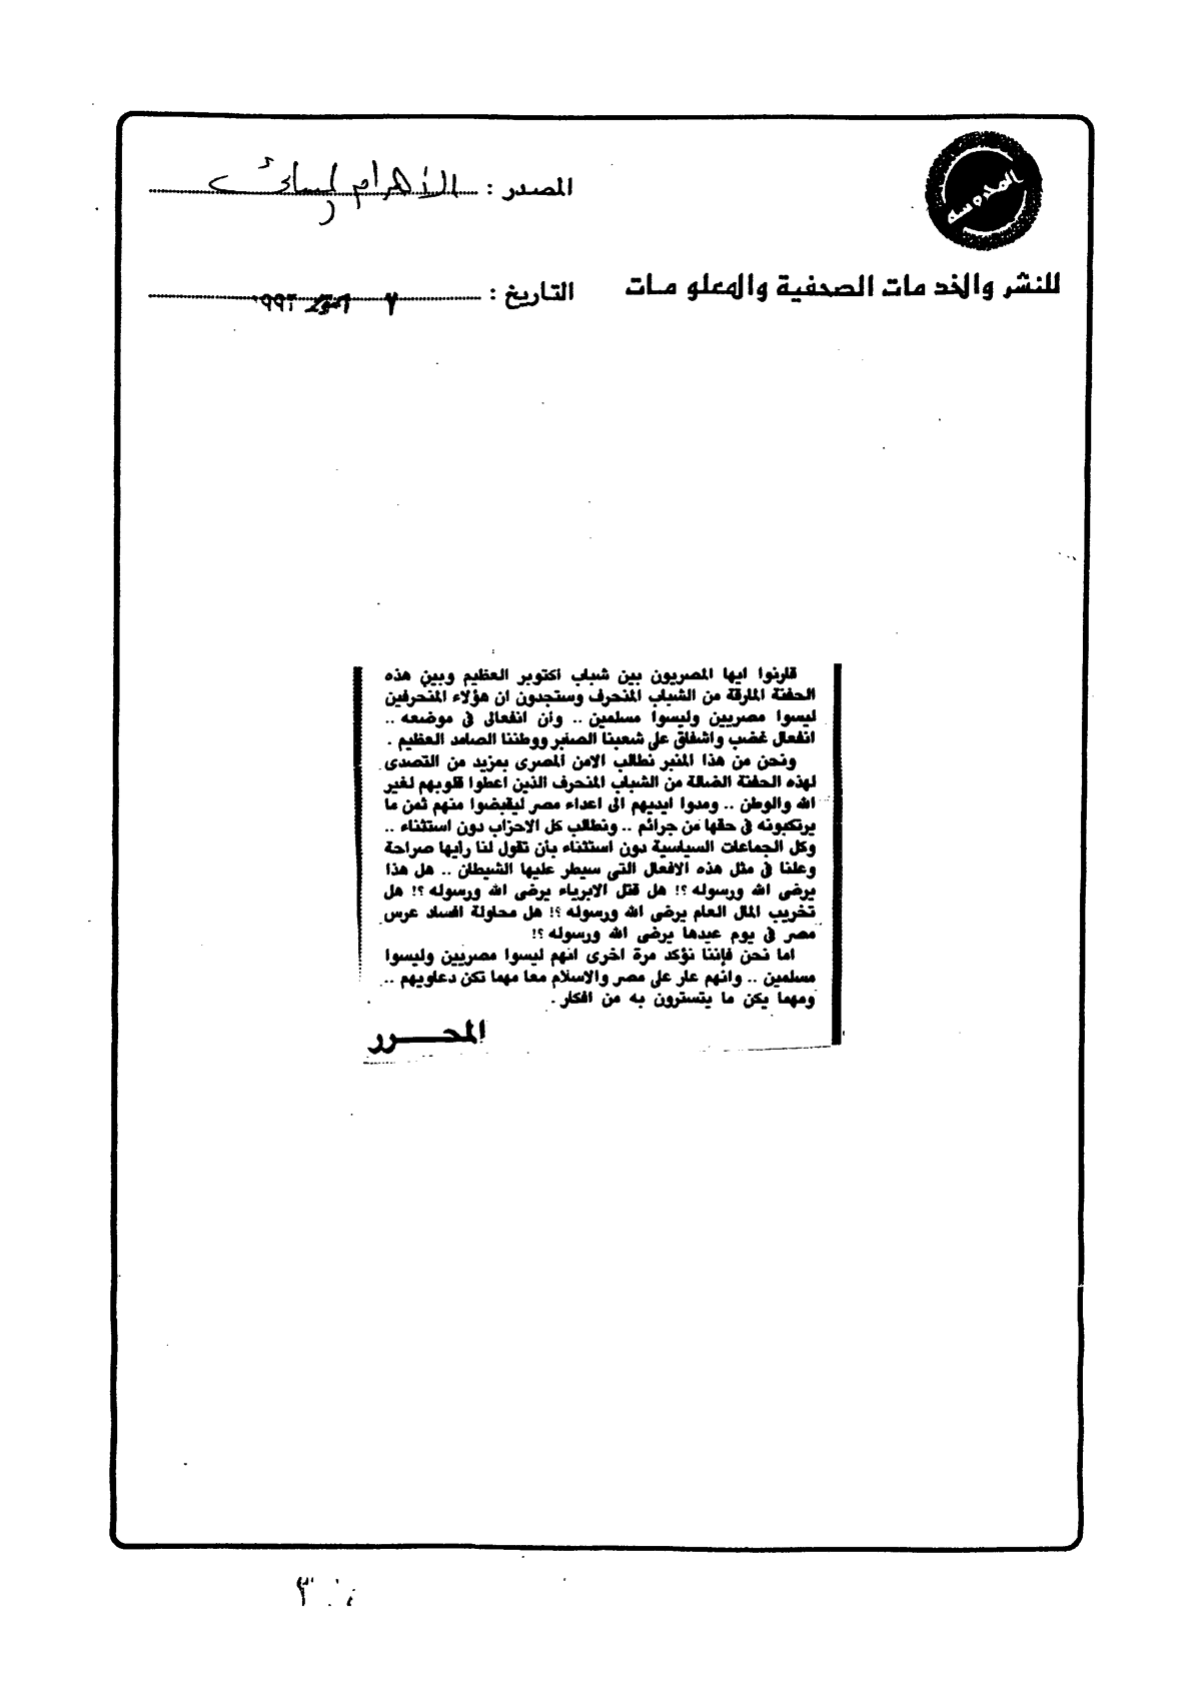 المحروسة
المصدر : الأهرام المسائى
للنشر والخدمات الصحفية والمعلومات
التاريخ : ٧ أكتوبر ١٩٩٢
قارنوا ايها المصريون بين شباب اكتوبر العظيم وبين هذه
الحفنة المارقة من الشباب المنحرف وستجدون ان هؤلاء المنحرفين
ليسوا مصريين وليسوا مسلمين .. وأن انفعالى فى موضعه ..
انفعال غضب واشفاق على شعبنا الصابر ووطننا الصامد العظيم .
ونحن من هذا المنبر نطالب الامن المصرى بمزيد من التصدى
لهذه الحفنة الضالة من الشباب المنحرف الذين اعطوا قلوبهم لغير
الله والوطن .. ومدوا ايديهم الى اعداء مصر ليقبضوا منهم ثمن ما
يرتكبونه فى حقها من جرائم .. ونطالب كل الاحزاب دون استثناء ..
وكل الجماعات السياسية دون استثناء بأن تقول لنا رأيها صراحة
وعلنا فى مثل هذه الافعال التى سيطر عليها الشيطان .. هل هذا
يرضى الله ورسوله ؟! هل قتل الابرياء يرضى الله ورسوله ؟! هل
تخريب المال العام يرضى الله ورسوله ؟! هل محاولة افساد عرس
مصر فى يوم عيدها يرضى الله ورسوله ؟!
اما نحن فإننا نؤكد مرة اخرى انهم ليسوا مصريين وليسوا
مسلمين .. وانهم عار على مصر والاسلام معا مهما تكن دعاويهم ..
ومهما يكن ما يتسترون به من افكار .
المحــــرر